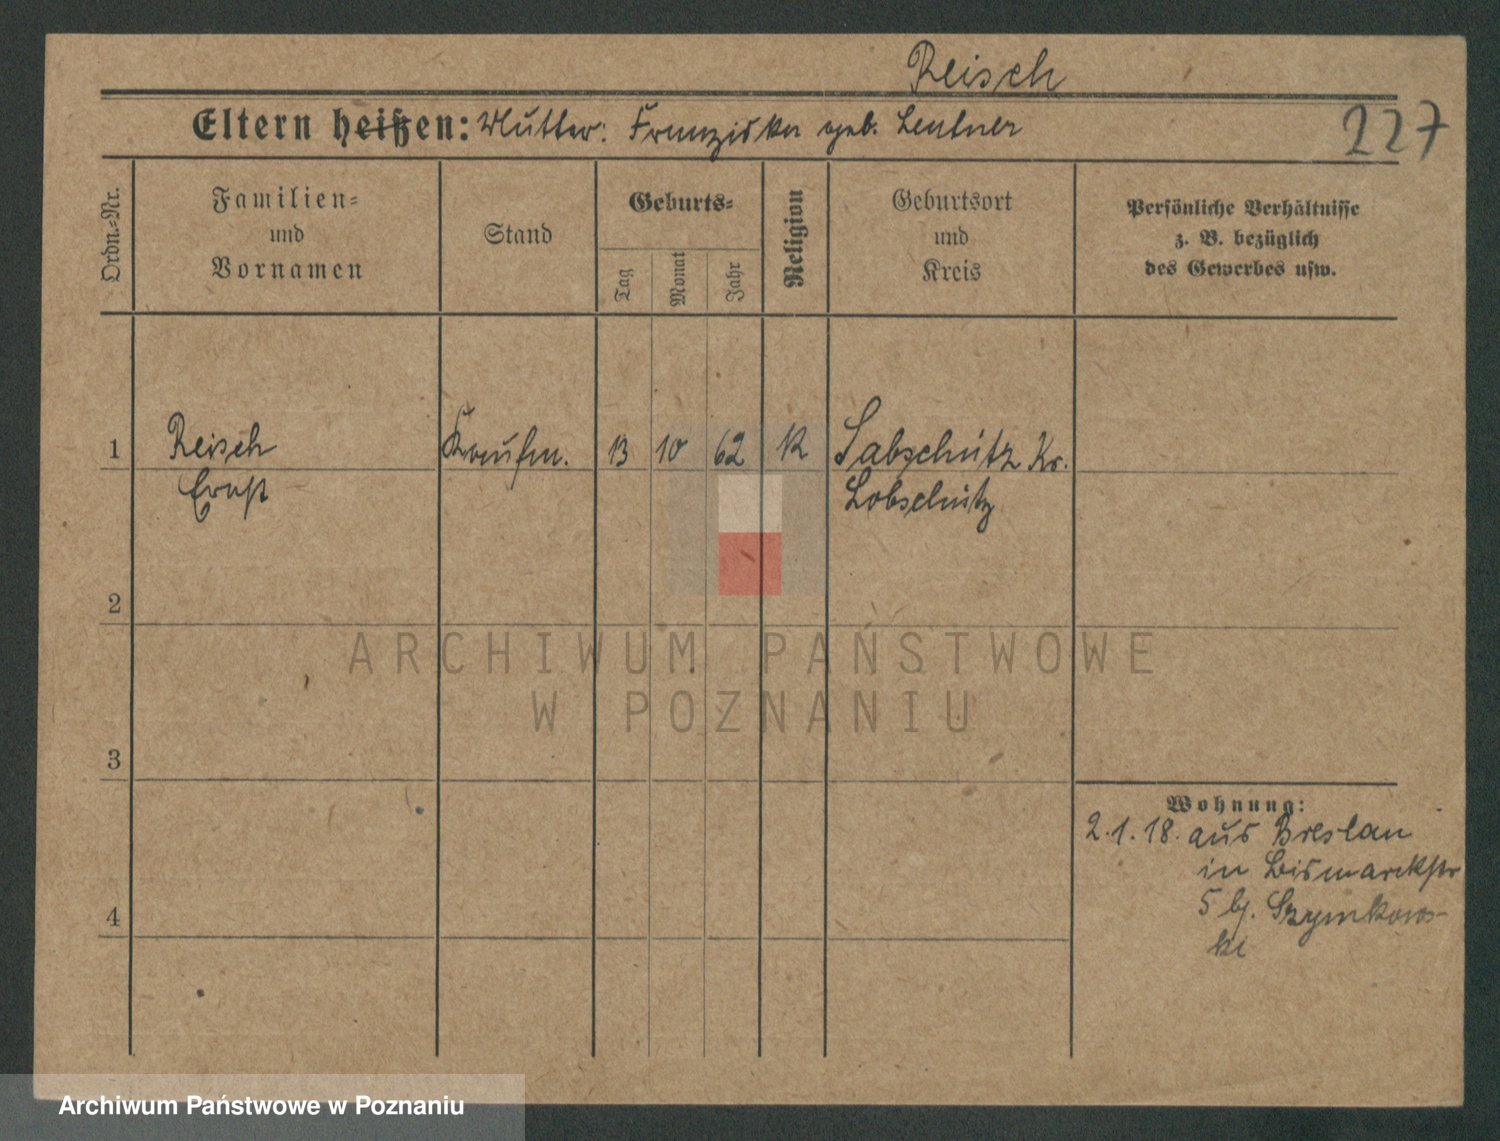 Reisch
Eltern heißen: Mutter: Franziska geb. Lentner
227
Ordn.=Nr.
Familien=
und
Vornamen
Stand
Geburts=
Tag
Monat
Jahr
Religion
Geburtsort
und
Kreis
Persönliche Verhältnisse
z. B. bezüglich
des Gewerbes usw.
1
Reisch
Ernst
Kaufm.
13
10
62
K
Sabschütz Kr.
Lobschütz
2
3
4
Wohnung:
2.1.18. aus Breslau
in Bismarckstr
5 bj. Szymkows-
ki
ARCHIWUM PAŃSTWOWE
W POZNANIU
Archiwum Państwowe w Poznaniu